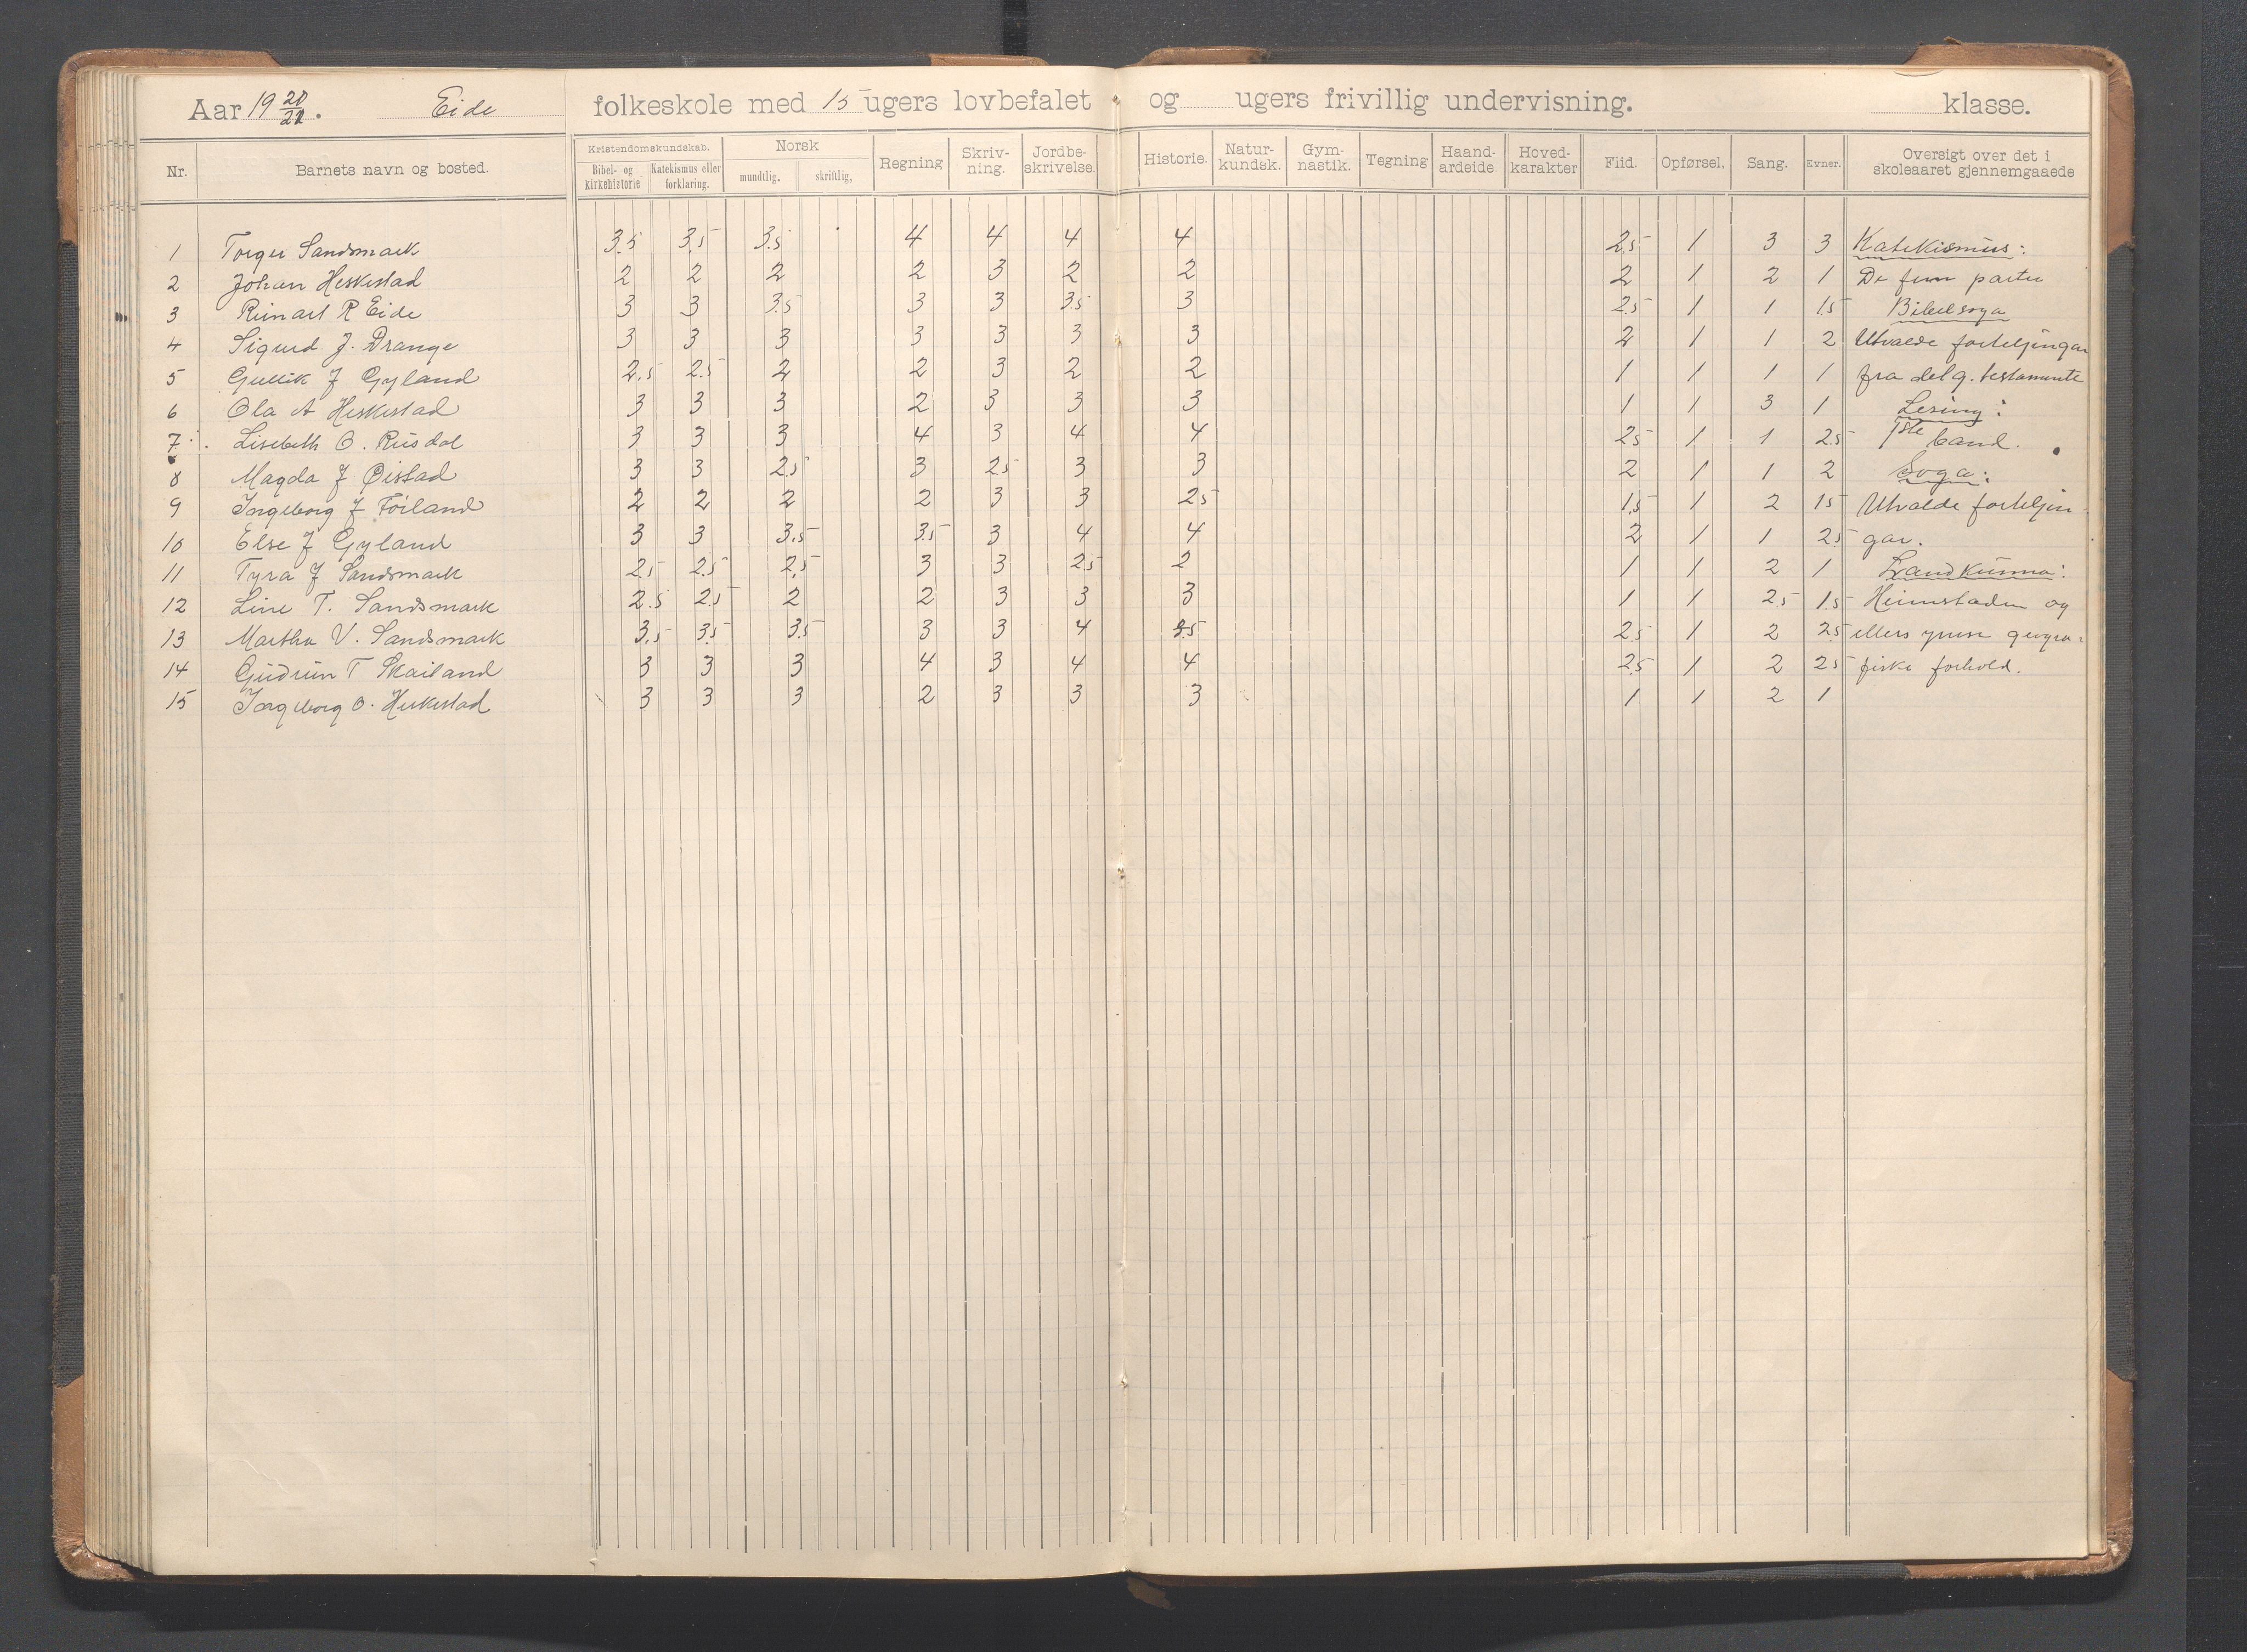 Aar 19 20/21. Eide folkeskole med 15 ugers lovbefalet og ugers frivillig undervisning. klasse.
Nr. Barnets navn og bosted. Kristendomskundskab. Bibel- og kirkehistorie Katekismus eller forklaring. Norsk mundtlig. skriftlig, Regning Skriv-ning. Jordbe-skrivelse. Historie. Natur-kundsk. Gym-nastik. Tegning Haand-ardeide Hoved-karakter Flid. Opførsel. Sang. Evner. Oversigt over det i skoleaaret gjennemgaaede
1 Torger Sandsmark 3.5 3.5 3.5 4 4 4 4 2.5 1 3 3 Katekismus:
2 Johan Heskestad 2 2 2 2 3 2 2 2 1 2 1 De fem parter
3 R Eide 3 3 3.5 3 3 3.5 3 2.5 1 1 1.5 Bibelsoga
4 Sigurd J. Drange 3 3 3 3 3 3 3 2 1 1 2 Utvalde forteljingar
5 Gullik J Gyland 2.5 2.5 2 2 3 2 2 1 1 1 1 fra det g. testamente
6 Ola A Heskestad 3 3 3 2 3 3 3 1 1 3 1 Lesing:
7 Lisebeth O. Rusdal 3 3 3 4 3 4 4 2.5 1 1 2.5 1ste band.
8 Magda J Øistad 3 3 2.5 3 2.5 3 3 2 1 1 2 Soga:
9 Ingeborg J Foiland 2 2 2 2 3 3 2.5 1.5 1 2 1.5 Utvalde forteljin-
10 Else J Gyland 3 3 3.5 3.5 3 4 4 2 1 1 2.5 gar.
11 Tyra J Sandsmark 2.5 2.5 2.5 3 3 2.5 2 1 1 2 1 Landkunna:
12 Line T. Sandsmark 2.5 2.5 2 2 3 3 3 1 1 2.5 1.5 Heimstaden og
13 Martha V. Sandsmark 3.5 3.5 3.5 3 3 4 3.5 2.5 1 2 2.5 ellers ymse geogra-
14 Gudrun T Skailand 3 3 3 4 3 4 4 2.5 1 2 2.5 fiske forhold.
15 Ingeborg O. Heskestad 3 3 3 2 3 3 3 1 1 2 1